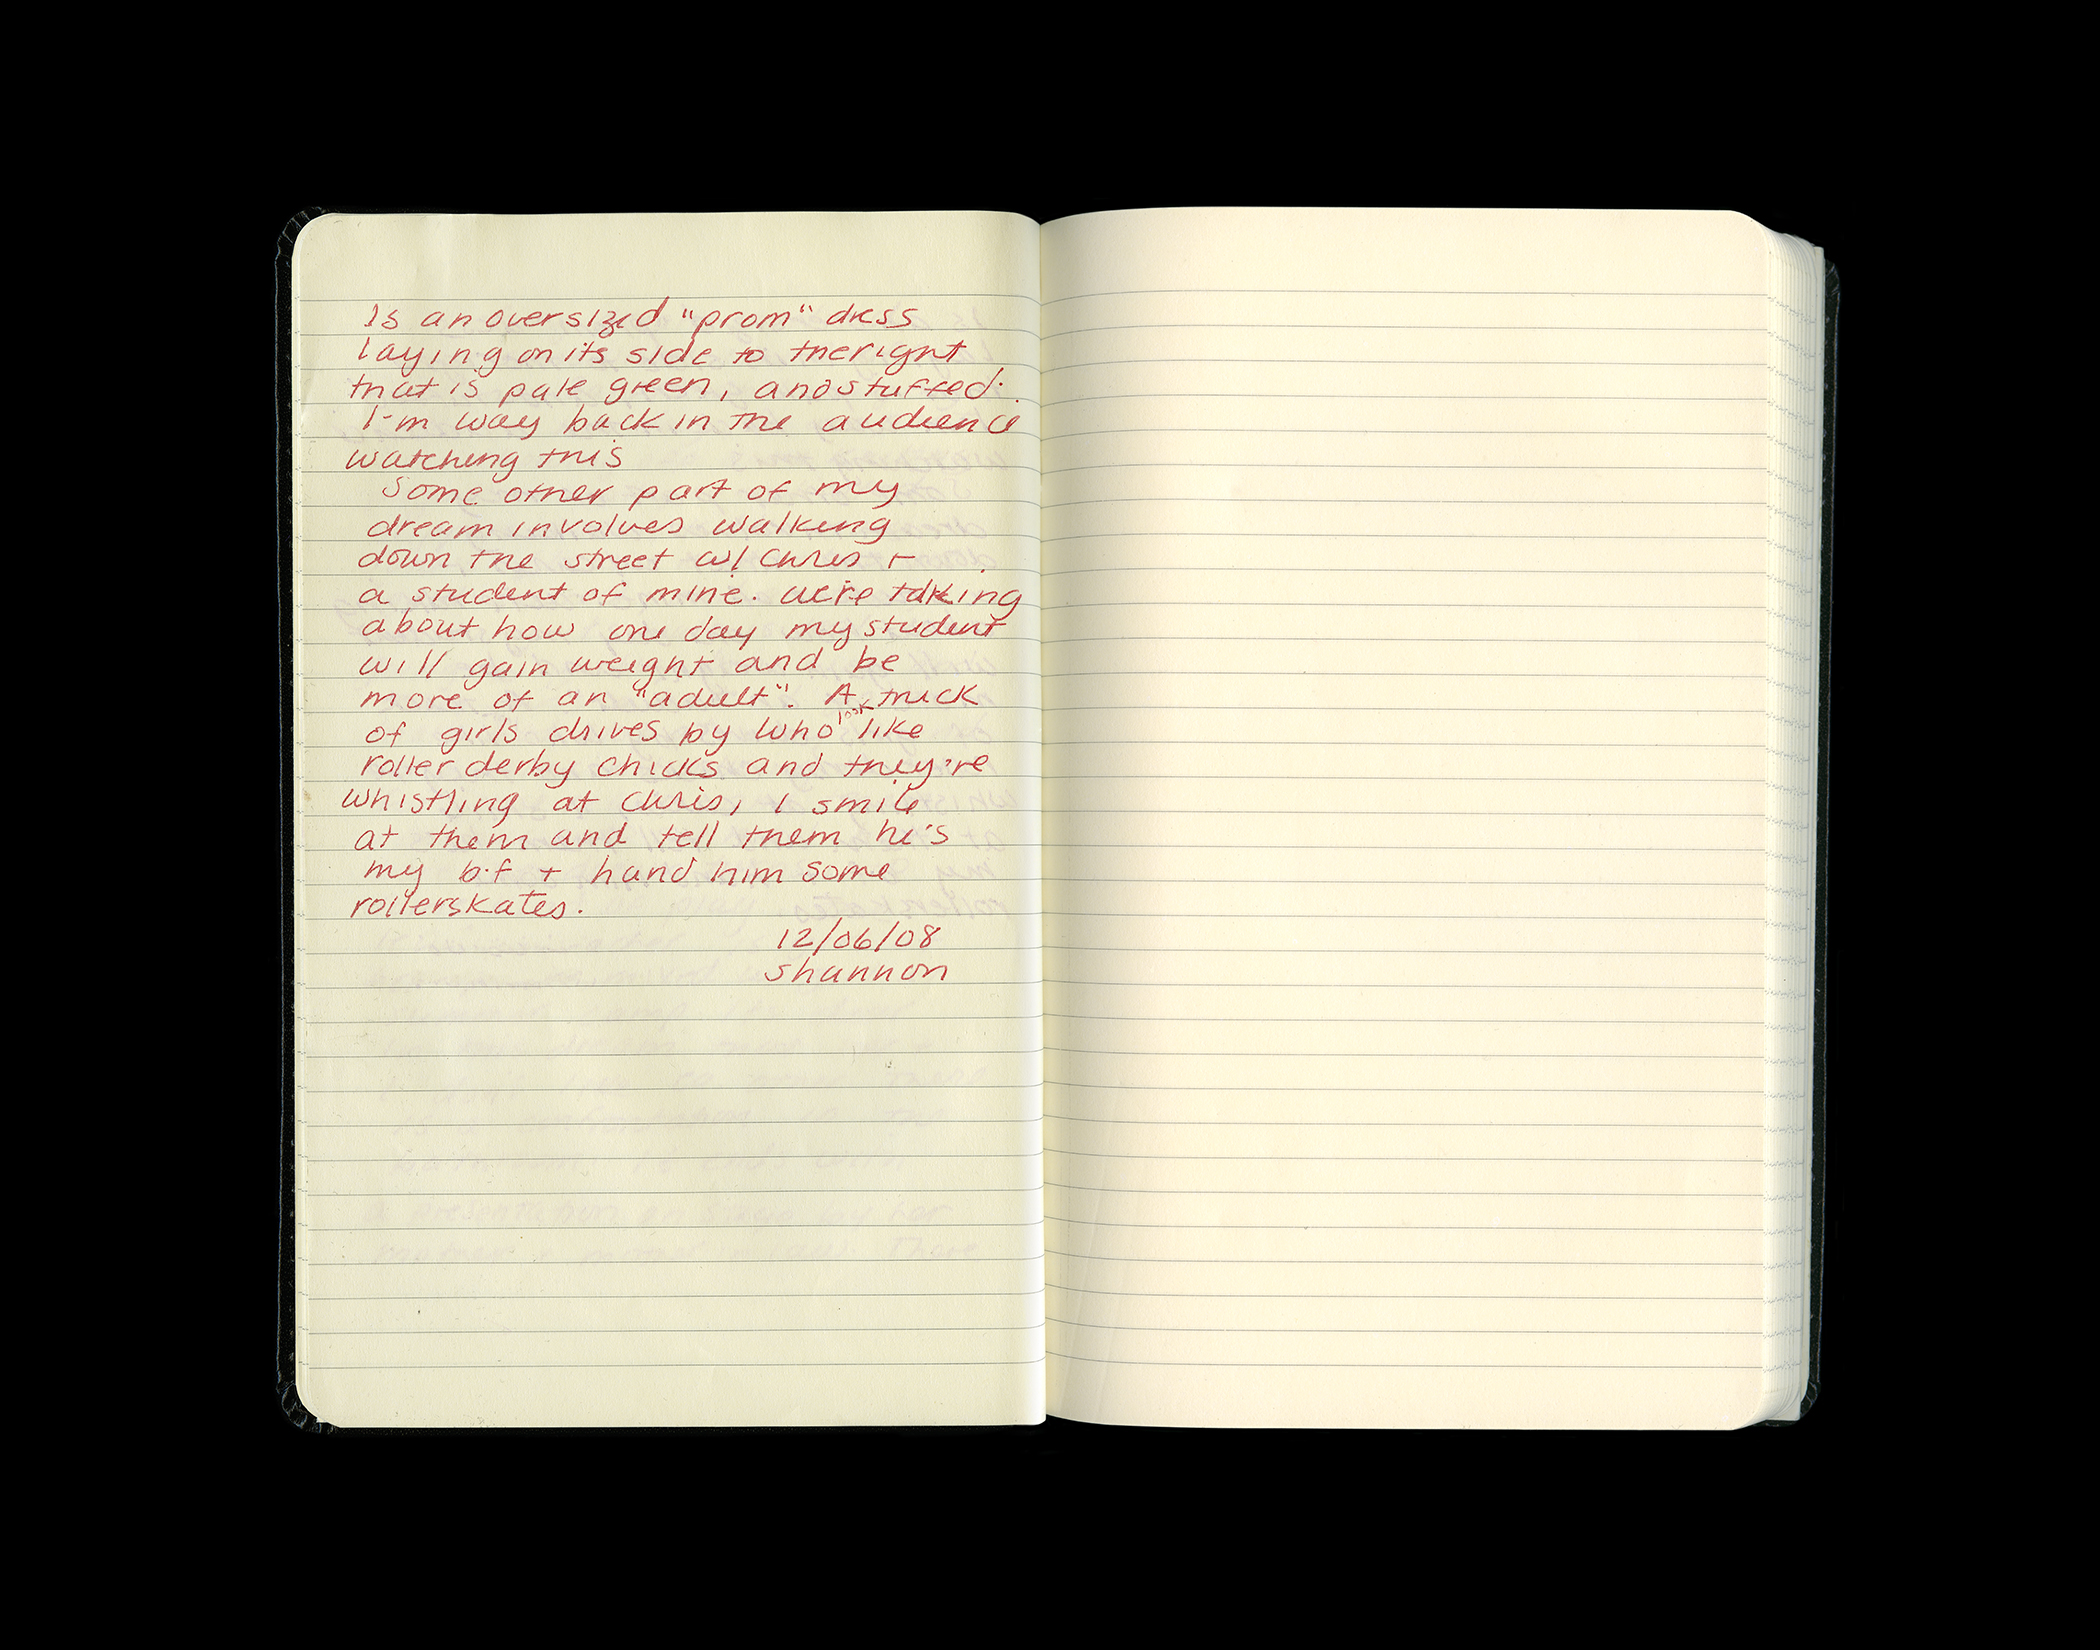 is an oversized "prom" dress
laying on its side to the right
that is pale green, and stuffed.
I'm way back in the audience
watching this
Some other part of my
dream involves walking
down the street w/ Chris +
a student of mine. We're talking
about how one day my student
will gain weight and be
more of an "adult". A truck
of girls drives by who look like
roller derby chicks and they're
whistling at Chris, I smile
at them and tell them he's
my b.f + hand him some
rollerskates.
12/06/08
Shannon